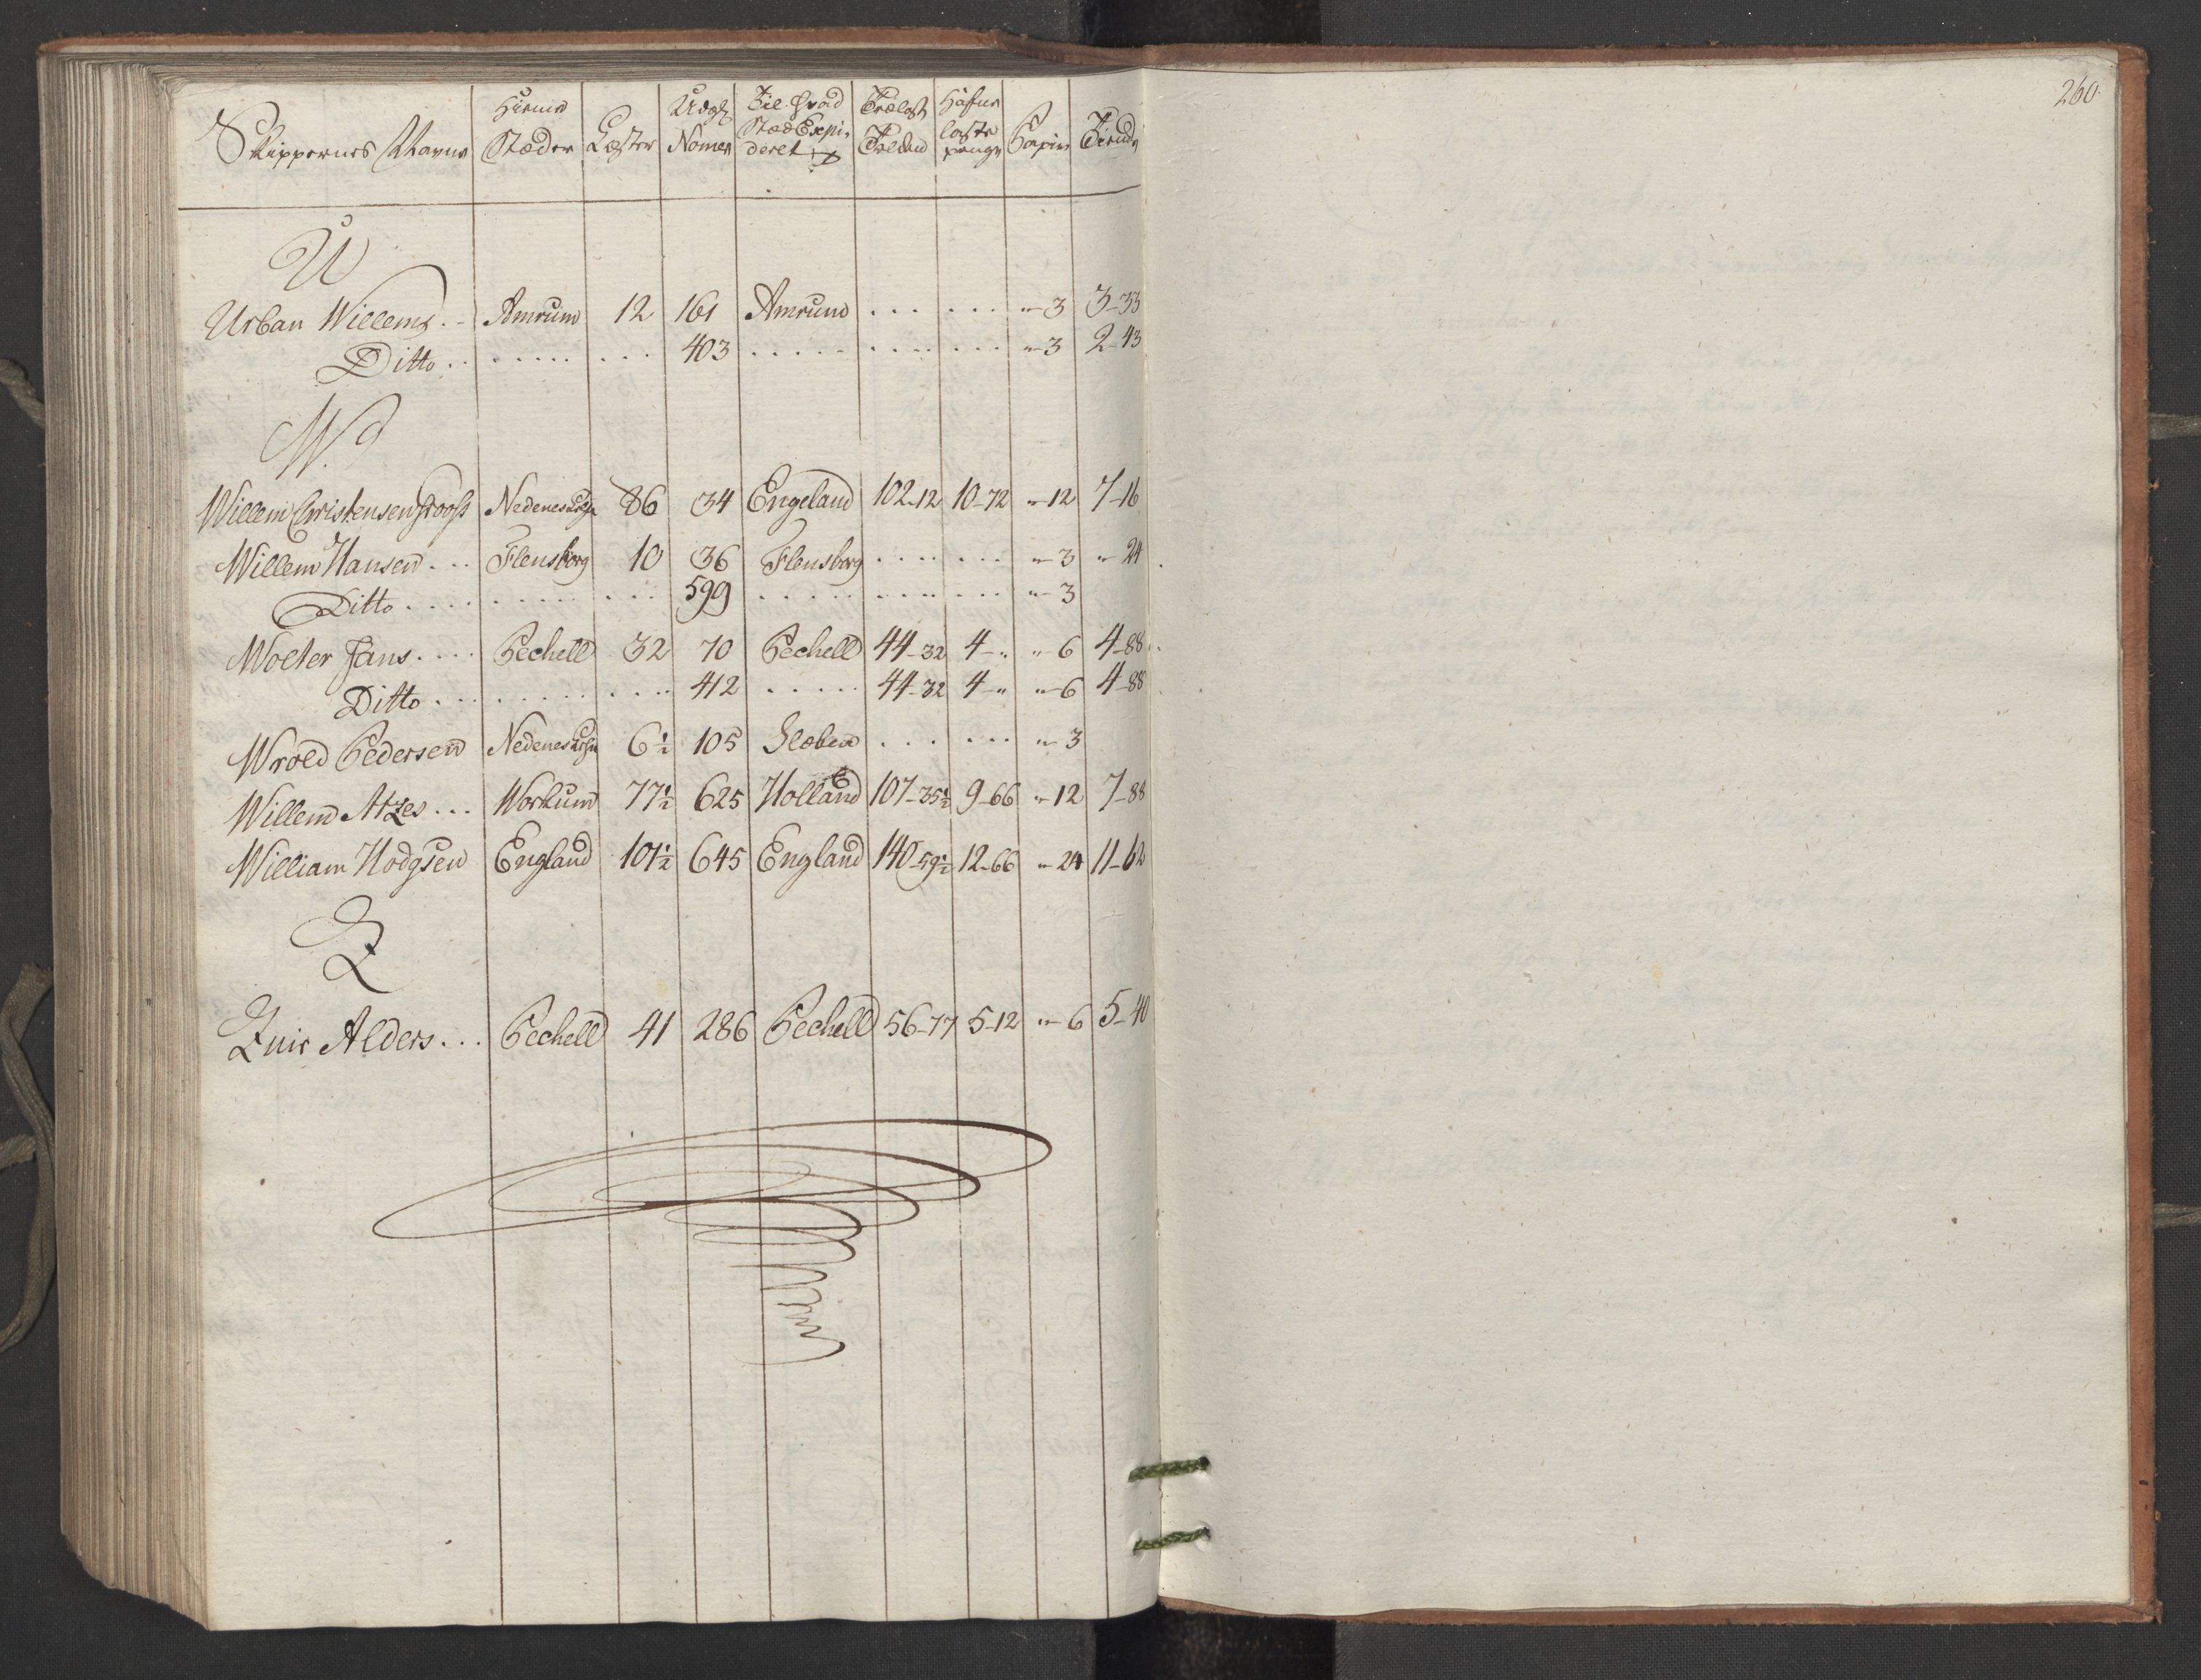 260.
Skippernes Navne | Hiemme Stæder | Læster | Udg: Nomer | Til hvad Stæd Expederet | Trælast Tolden | Hafne laste penge | Papiir | Tiende
U
Urban Willems . . Amrum 12 161 Amrum . . . . . . „ 3 3-33
Ditto . . . . . . . . . . 403 . . . . . . . . . . . „ 3 2-43
W.
Willem Christensen Nedenes 86 34 Engeland 102-12 10-72 „ 12 7-16
Willem Hansen . . . Flensborg 10 36 Flensborg . . . . . . „ 3 „ 24
Ditto . . . . . . . . . . . 599 . . . . . . . . . . . „ 3
Wolter Jans . . . . Pechell 32 70 Pechell 44-32 4-„ „ 6 4-88
Ditto . . . . . . . . . . . 412 . . . . . 44-32 4-„ „ 6 4-88
Wrold Pedersen Nedenes 6½ 105 . . . . . . „ 3
Willem Atzes . . . Workum 77½ 625 Holland 107-35½ 9-66 „ 12 7-88
William Hodgsen England 101½ 645 England 140-59½ 12-66 „ 24 11-62
Z
Zuir Alders . . . Pechell 41 286 Pechell 56-77 5-12 „ 6 5-40